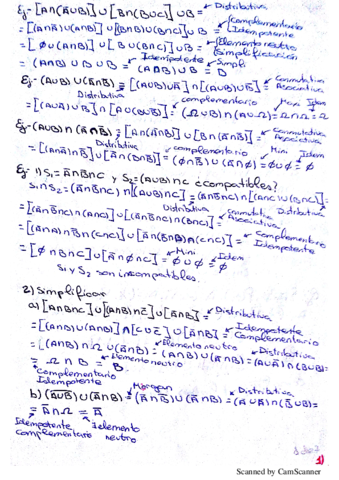 Ej- [A∩(A̅∪B)] ∪ [B∩(B∪C)] ∪ B = Distributiva
= [(A∩A̅)∪(A∩B)] ∪ [(B∩B)∪(B∩C)] ∪ B = Complementario Idempotente
= [∅∪(A∩B)] ∪ [B∪(B∩C)] ∪ B = Elemento neutro Simplificación
= (A∩B) ∪ B ∪ B = Idempotente (A∩B)∪B = Simpli B
Ej- (A∪B) ∪ (A̅∩B̅) = [(A∪B)∪A̅] ∩ [(A∪B)∪B̅] = Conmutativa Asociativa
= [(A∪A̅)∪B] ∩ [A∪(B∪B̅)] = complementario (Ω∪B)∩(A∪Ω) = Maxi Ω∩Ω = Idem Ω
Ej- (A∪B) ∩ (A̅∩B̅) = [A∩(A̅∩B̅)] ∪ [B∩(A̅∩B̅)] = Conmutativa Asociativa
Distributiva
= [(A∩A̅)∩B̅] ∪ [A̅∩(B∩B̅)] = complementario (∅∩B̅)∪(A̅∩∅) = Mini ∅∪∅ = Idem ∅
Ej- 1) S₁ = A̅∩B̅∩C y S₂ = (A∪B)∩C ¿compatibles?
S₁∩S₂ = (A̅∩B̅∩C) ∩ [(A∪B)∩C] = (A̅∩B̅∩C) ∩ [(A∩C)∪(B∩C)] =
Distributiva Distributiva
= [(A̅∩B̅∩C)∩(A∩C)] ∪ [(A̅∩B̅∩C)∩(B∩C)] = Conmutativa Asociativa
= [(A̅∩A)∩B̅∩(C∩C)] ∪ [A̅∩(B̅∩B)∩(C∩C)] = Complementario Idempotente
= [∅∩B̅∩C] ∪ [A̅∩∅∩C] = Mini ∅∪∅ = Idem ∅
S₁ y S₂ son incompatibles.
2) Simplificar
a) [A∩B∩C] ∪ [(A∩B)∩C̅] ∪ [A̅∩B] = Distributiva
= [(A∩B)∪(A∩B)] ∩ [C∪C̅] ∪ [A̅∩B] = Idempotente Complementario
= (A∩B)∩Ω ∪ (A̅∩B) = Elemento neutro (A∩B)∪(A̅∩B) = Distributiva (A∪A̅)∩(B∪B) =
= Ω∩B = Elemento neutro B.
Complementario
Idempotente
b) (A̅∪̅B̅) ∪ (A̅∩B) = Morgan (A̅∩B̅)∪(A̅∩B) = Distributiva (A̅∪A̅)∩(B̅∪B) =
= A̅∩Ω = A̅
Idempotente elemento
complementario neutro
1)
Scanned by CamScanner